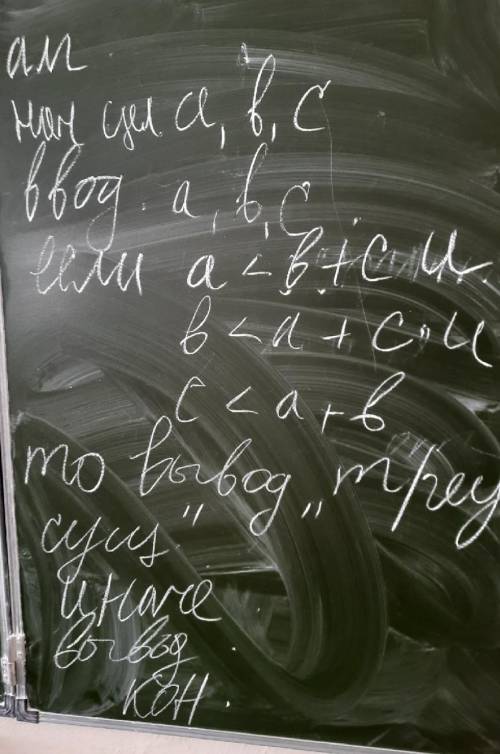 ал
нач цел a, b, c
ввод. a, b, c
если a < b + c и
b < a + c и
c < a + b
то вывод „треу
сущ."
иначе
вывод
кон.